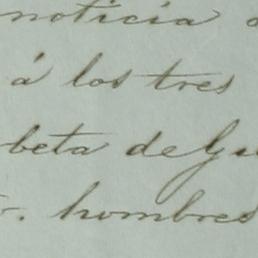 noticia
á los tres
beta de Gu
hombres